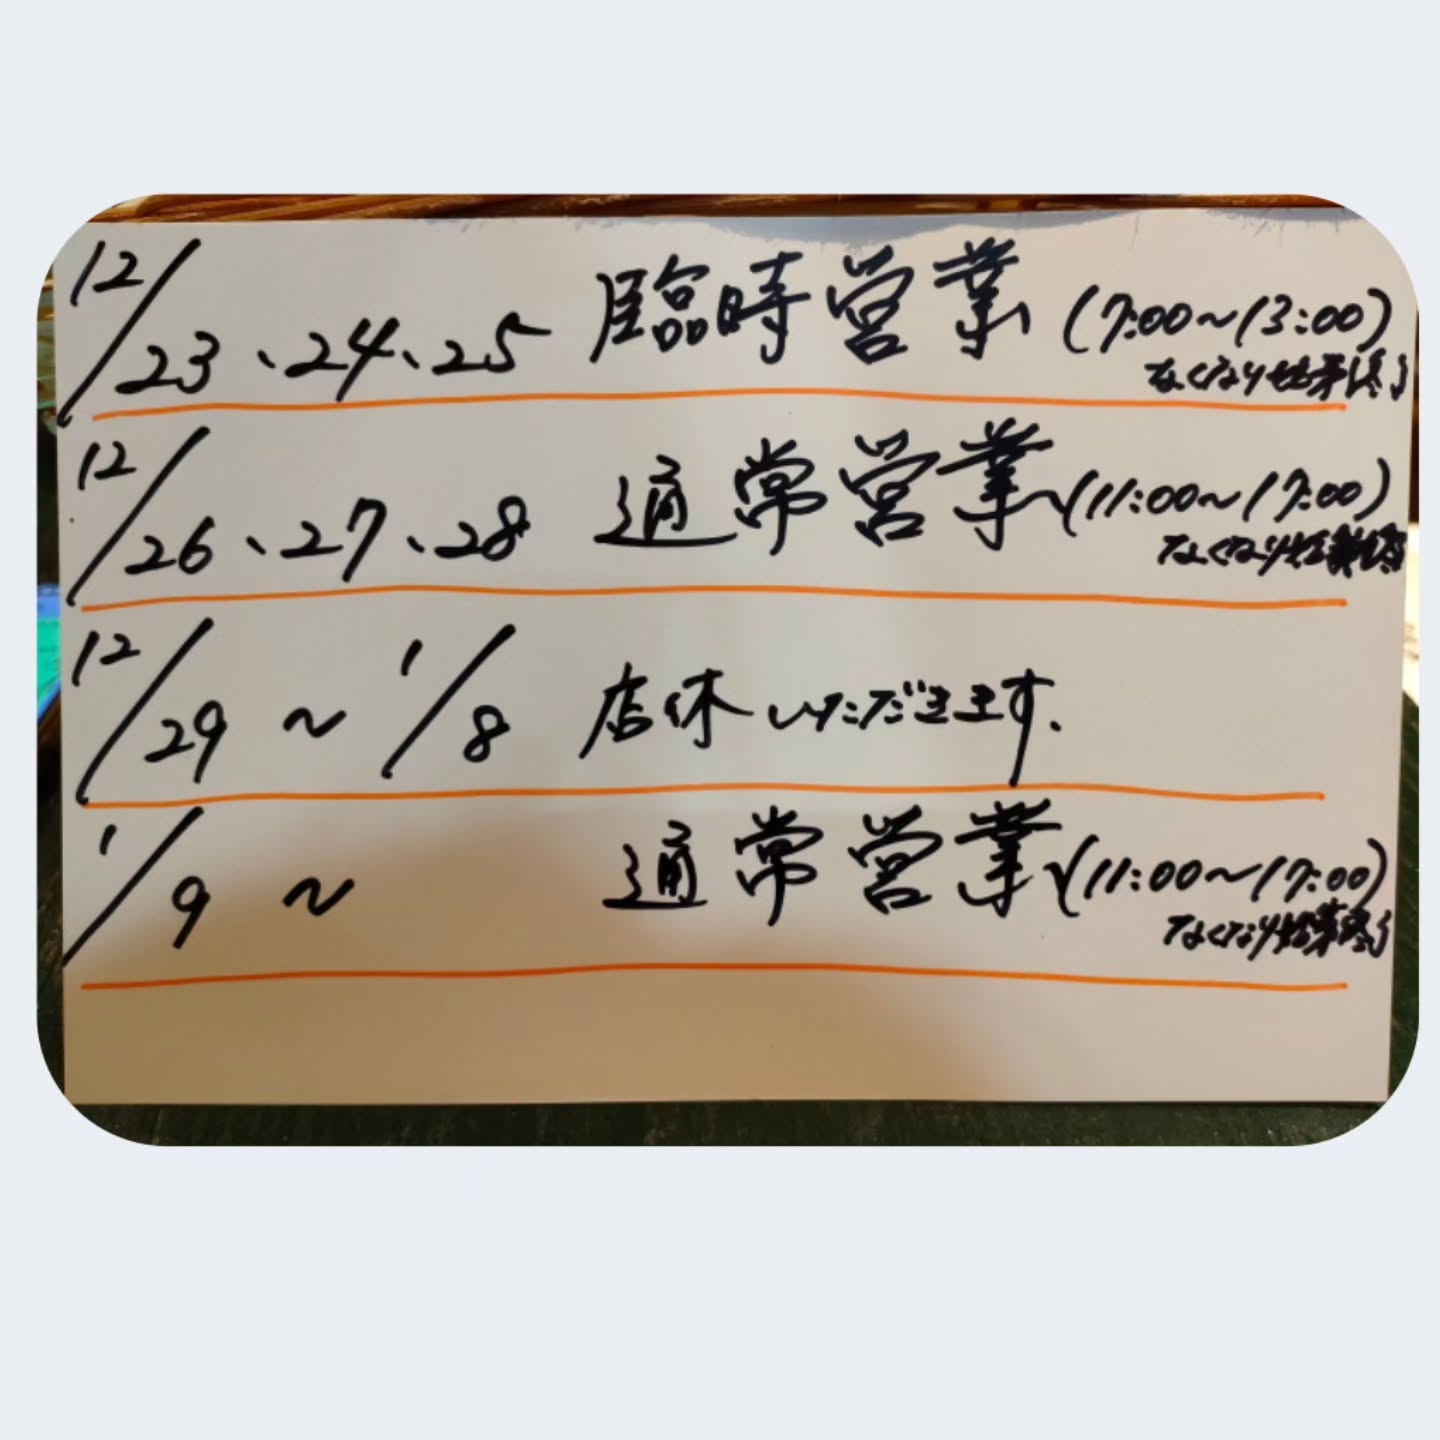 12/23、24、25 臨時営業 (7:00〜13:00)
なくなり始第終了
12/26、27、28 通常営業 (11:00〜17:00)
なくなり
12/29 〜 1/8 店休いただきます.
1/9 〜 通常営業 (11:00〜17:00)
なくなり